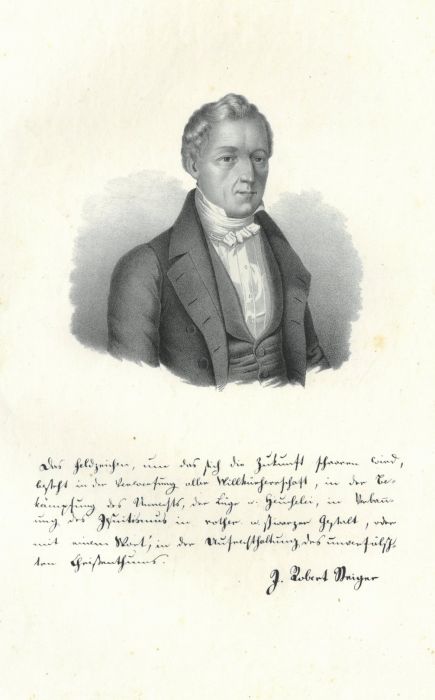 Das Feldzeichen, um das sich die Zukunft schaaren wird,
besteht in der Verwerfung aller Willkürherrschaft, in der Be-
kämpfung des Unrechts, der Lüge u. Heuchelei, in Verban-
nung des Jesuitismus in rother u. schwarzer Gestalt, oder
mit einem Wort, in der Aufrechthaltung des unverfälsch-
ten Christenthums.
J. Robert Steiger